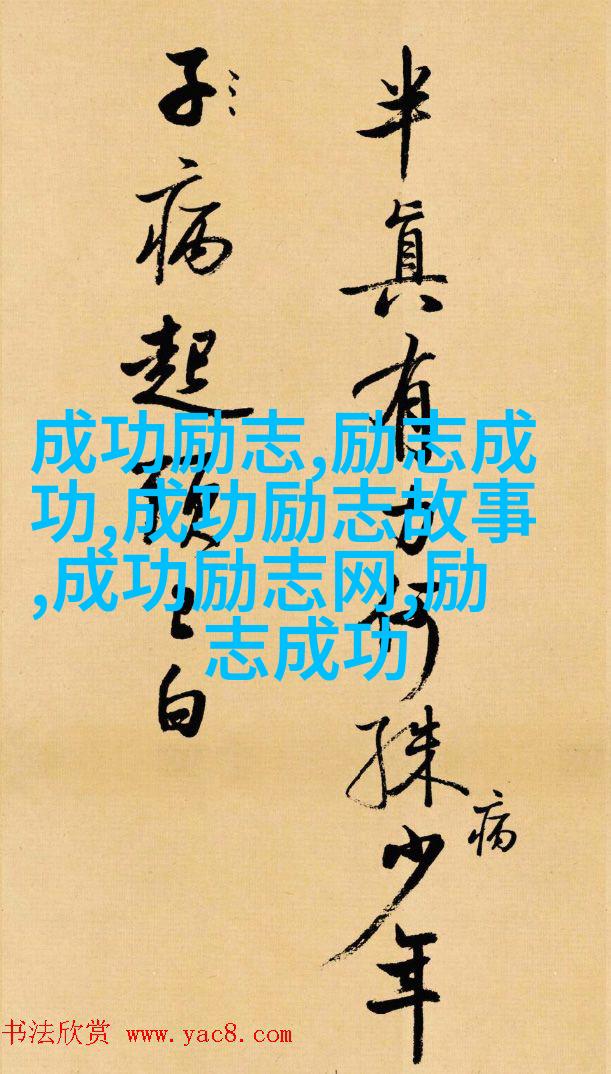 半真有方何殊少年
病
子病起
白
成功励志,励志成
功,成功励志故事
,成功励志网,励
志成功
书法欣赏 www.yac8.com